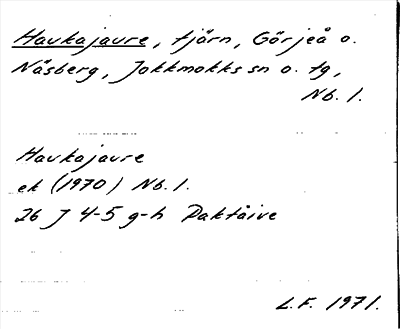 Haukajaure, tjärn, Görjeå o.
Näsberg, Jokkmokks sn o. tg,
Nb. l.
Haukajaure
ek (1970) Nb. l.
26 J 4-5 g-h Daktåive
L.F. 1971.